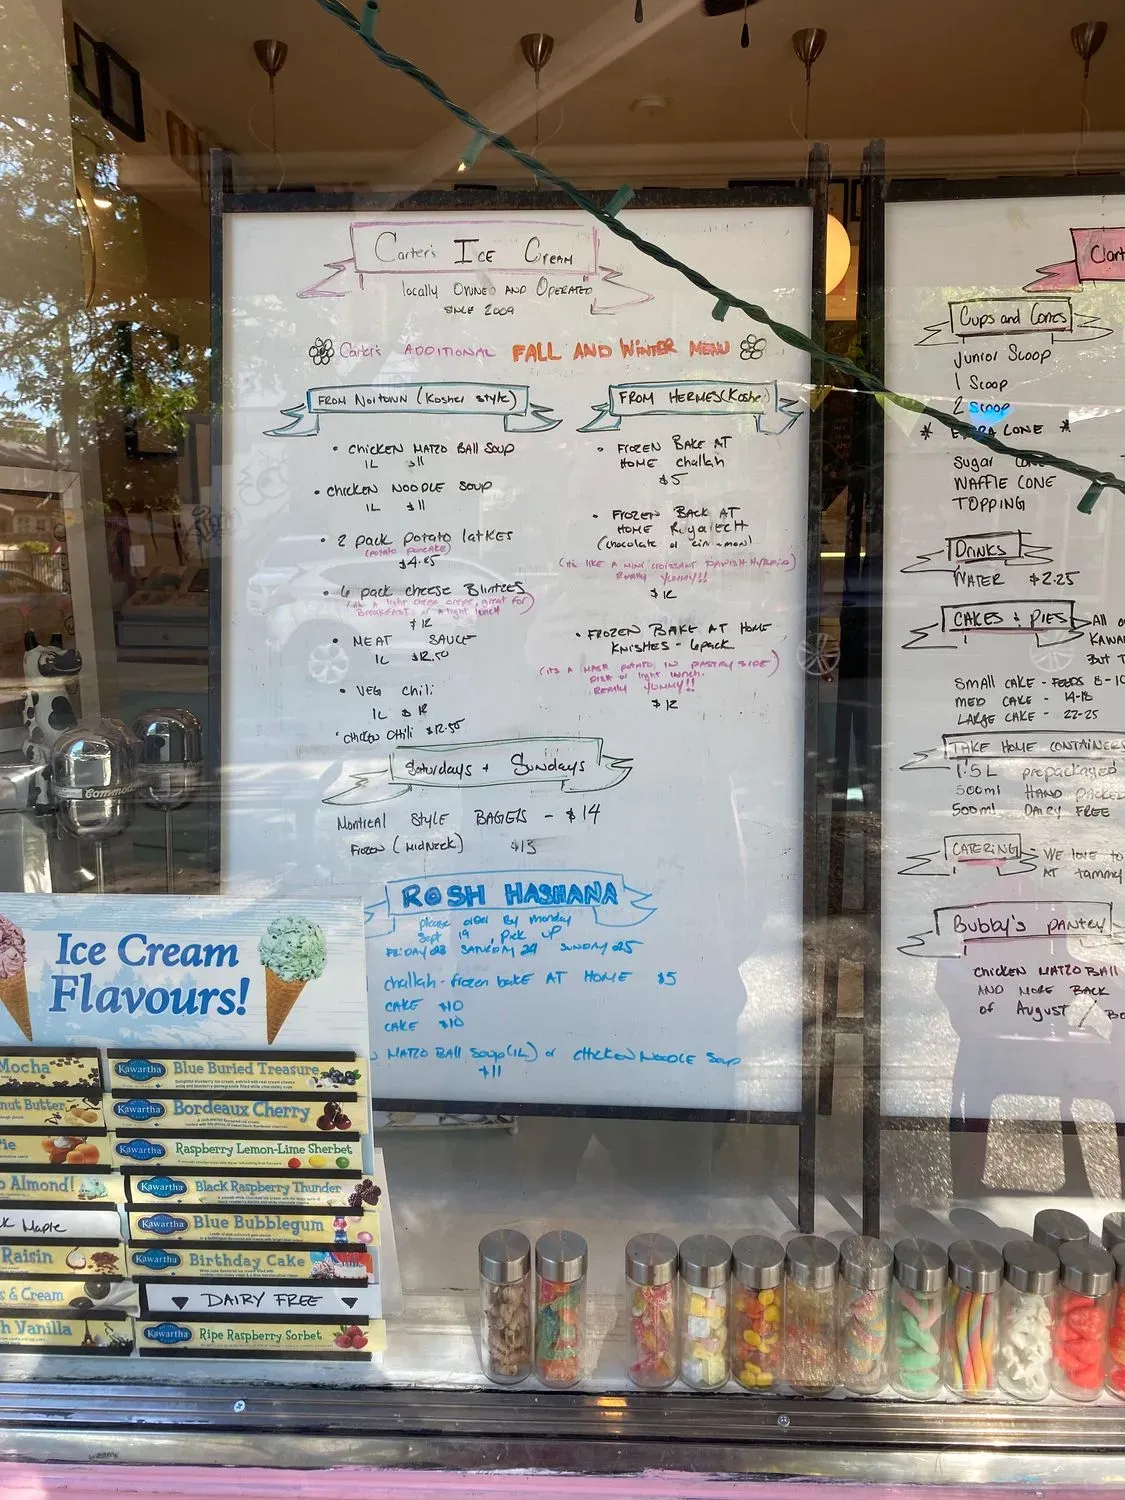 Carter's ICE CREAM
locally OWNED AND OPERATED
SINCE 2009
Carter's ADDITIONAL FALL AND WINTER MENU
FROM NORTOWN (Kosher style)
• CHICKEN MATZO BALL SOUP
1L $11
• CHICKEN NOODLE SOUP
1L $11
• 2 pack potato latkes
(potato pancake)
• 6 pack cheese Blintzes
great for
BREAKFAST or a light lunch
$12
• MEAT SAUCE
1L $12.50
• VEG Chili
1L $12
• Chicken Chili $12.50
FROM HERMES (Kosher)
• FROZEN BAKE AT
HOME challah
$5
• FROZEN BACK AT
HOME
(chocolate or cinnamon)
(it's LIKE A MINI CROISSANT DANISH HYBRID)
REALLY YUMMY!!
$12
• FROZEN BAKE AT HOME
KNISHES - 6pack
(ITS A MASH POTATO IN PASTRY SIDE
DISH or light lunch.
REALLY YUMMY!!
$12
Saturdays + Sundays
Montreal STYLE BAGELS - $14
FROZEN (Midweek) $13
ROSH HASHANA
please order By Monday
Sept 19, Pick up
FRIDAY 23 SATURDAY 24 SUNDAY 25
challah - frozen bake AT HOME $5
CAKE $10
CAKE $10
MATZO BALL SOUP (1L) or CHICKEN NOODLE SOUP
$11
Cups and Cones
Junior Scoop
1 Scoop
2 Scoop
* EXTRA CONE *
Sugar CONE
WAFFLE CONE
TOPPING
DRINKS
WATER $2.25
CAKES & PIES
SMALL CAKE - FEEDS 8-10
MED CAKE - 14-18
LARGE CAKE - 22-25
TAKE HOME CONTAINERS
1.5L prepackaged
500ml HAND PACKED
500ml DAIRY FREE
CATERING - WE love to
AT tammy
Bubby's pantry
Chicken MATZO BALL
AND MORE BACK
of August
Ice Cream
Flavours!
Mocha
Kawartha Blue Buried Treasure
nut Butter
Kawartha Bordeaux Cherry
Pie
Kawartha Raspberry Lemon-Lime Sherbet
Almond!
Kawartha Black Raspberry Thunder
Maple
Kawartha Blue Bubblegum
Raisin
Kawartha Birthday Cake
& Cream
DAIRY FREE
Vanilla
Kawartha Ripe Raspberry Sorbet